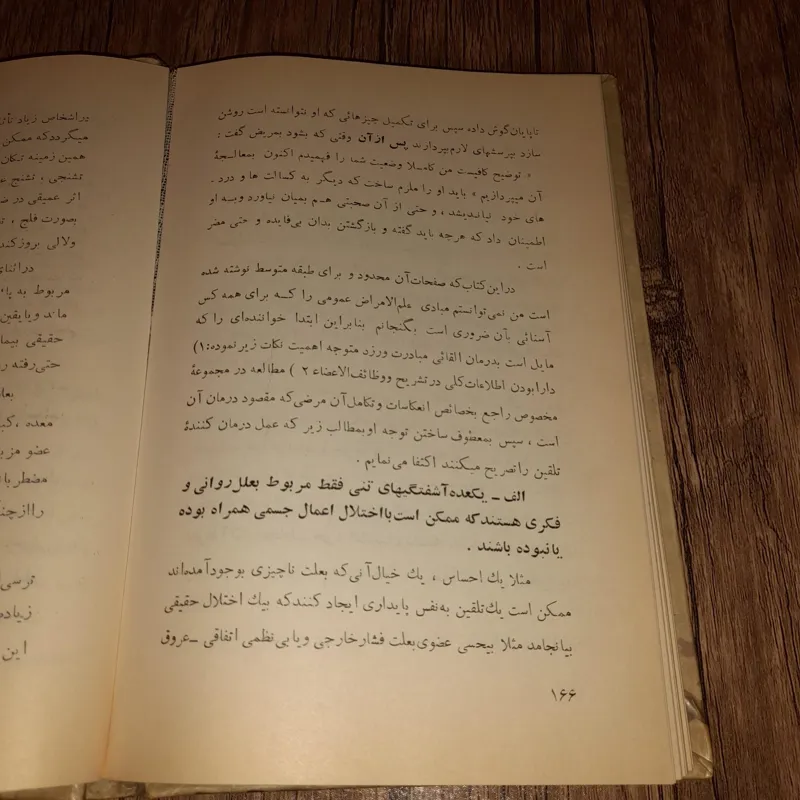 تاپایان‌گوش داده سپس برای تکمیل چیزهائی که او نتوانسته است روشن
سازد بپرسشهای لازم‌بپردازند پس از آن وقتی که بشود بمریض گفت :
« توضیح کافیست من کاملا وضعیت شما را فهمیدم اکنون بمعالجهٔ
آن میپردازیم » باید او را ملزم ساخت که دیگر به کسالت ها و درد ـ
های خود نیاندیشد ، و حتی از آن صحبتی هم بمیان نیاورد وبسه او
اطمینان داد که هرچه باید گفته و بازگشتن بدان بی‌فایده و حتی مضر
است .
دراین‌کتاب‌که صفحات‌آن محدود و برای طبقه متوسط نوشته شده
است من نمی‌توانستم مبادی علم‌الامراض عمومی را کسه برای همه کس
آسنائی بآن ضروری است بگنجانم بنابراین ابتدا خواننده‌ای را که
مایل است بدرمان القائی مبادرت ورزد متوجه اهمیت نکات زیرنموده:۱)
دارابودن اطلاعات‌کلی درتشریح ووظائف‌الاعضاء ۲ ) مطالعه در مجموعهٔ
مخصوص راجع بخصائص انعکاسات وتکامل‌آن مرضی‌که مقصود درمان آن
است ، سپس بمعطوف ساختن توجه اوبمطالب زیر که عمل درمان کنندهٔ
تلقین راتصریح میکنند اکتفا می‌نمایم .
الف ـ یکعده‌آشفتگیهای تنی فقط مربوط بعلل‌روانی و
فکری هستندکه ممکن است‌بااختلال اعمال جسمی همراه بوده
یانبوده باشند .
مثلا یك احساس ، یك خیال‌آنی‌که بعلت ناچیزی بوجودآمده‌اند
ممکن است یك‌تلقین به‌نفس پایداری ایجاد کنندکه بیك اختلال حقیقی
بیانجامد مثلا بیحسی عضوی‌بعلت فشارخارجی ویابی‌نظمی اتفاقی ـ‌عروق
۱۶۶
دراشخاص زیاد
میگرددکه ممکن
همین زمینه
تشنجی ، تشنج
اثر عمیقی در
بصورت فلج ،
ولالی بروزکند
مربوط به
ماند ویایقین
حقیقی
حتی‌رفته
معده ،
عضو
این